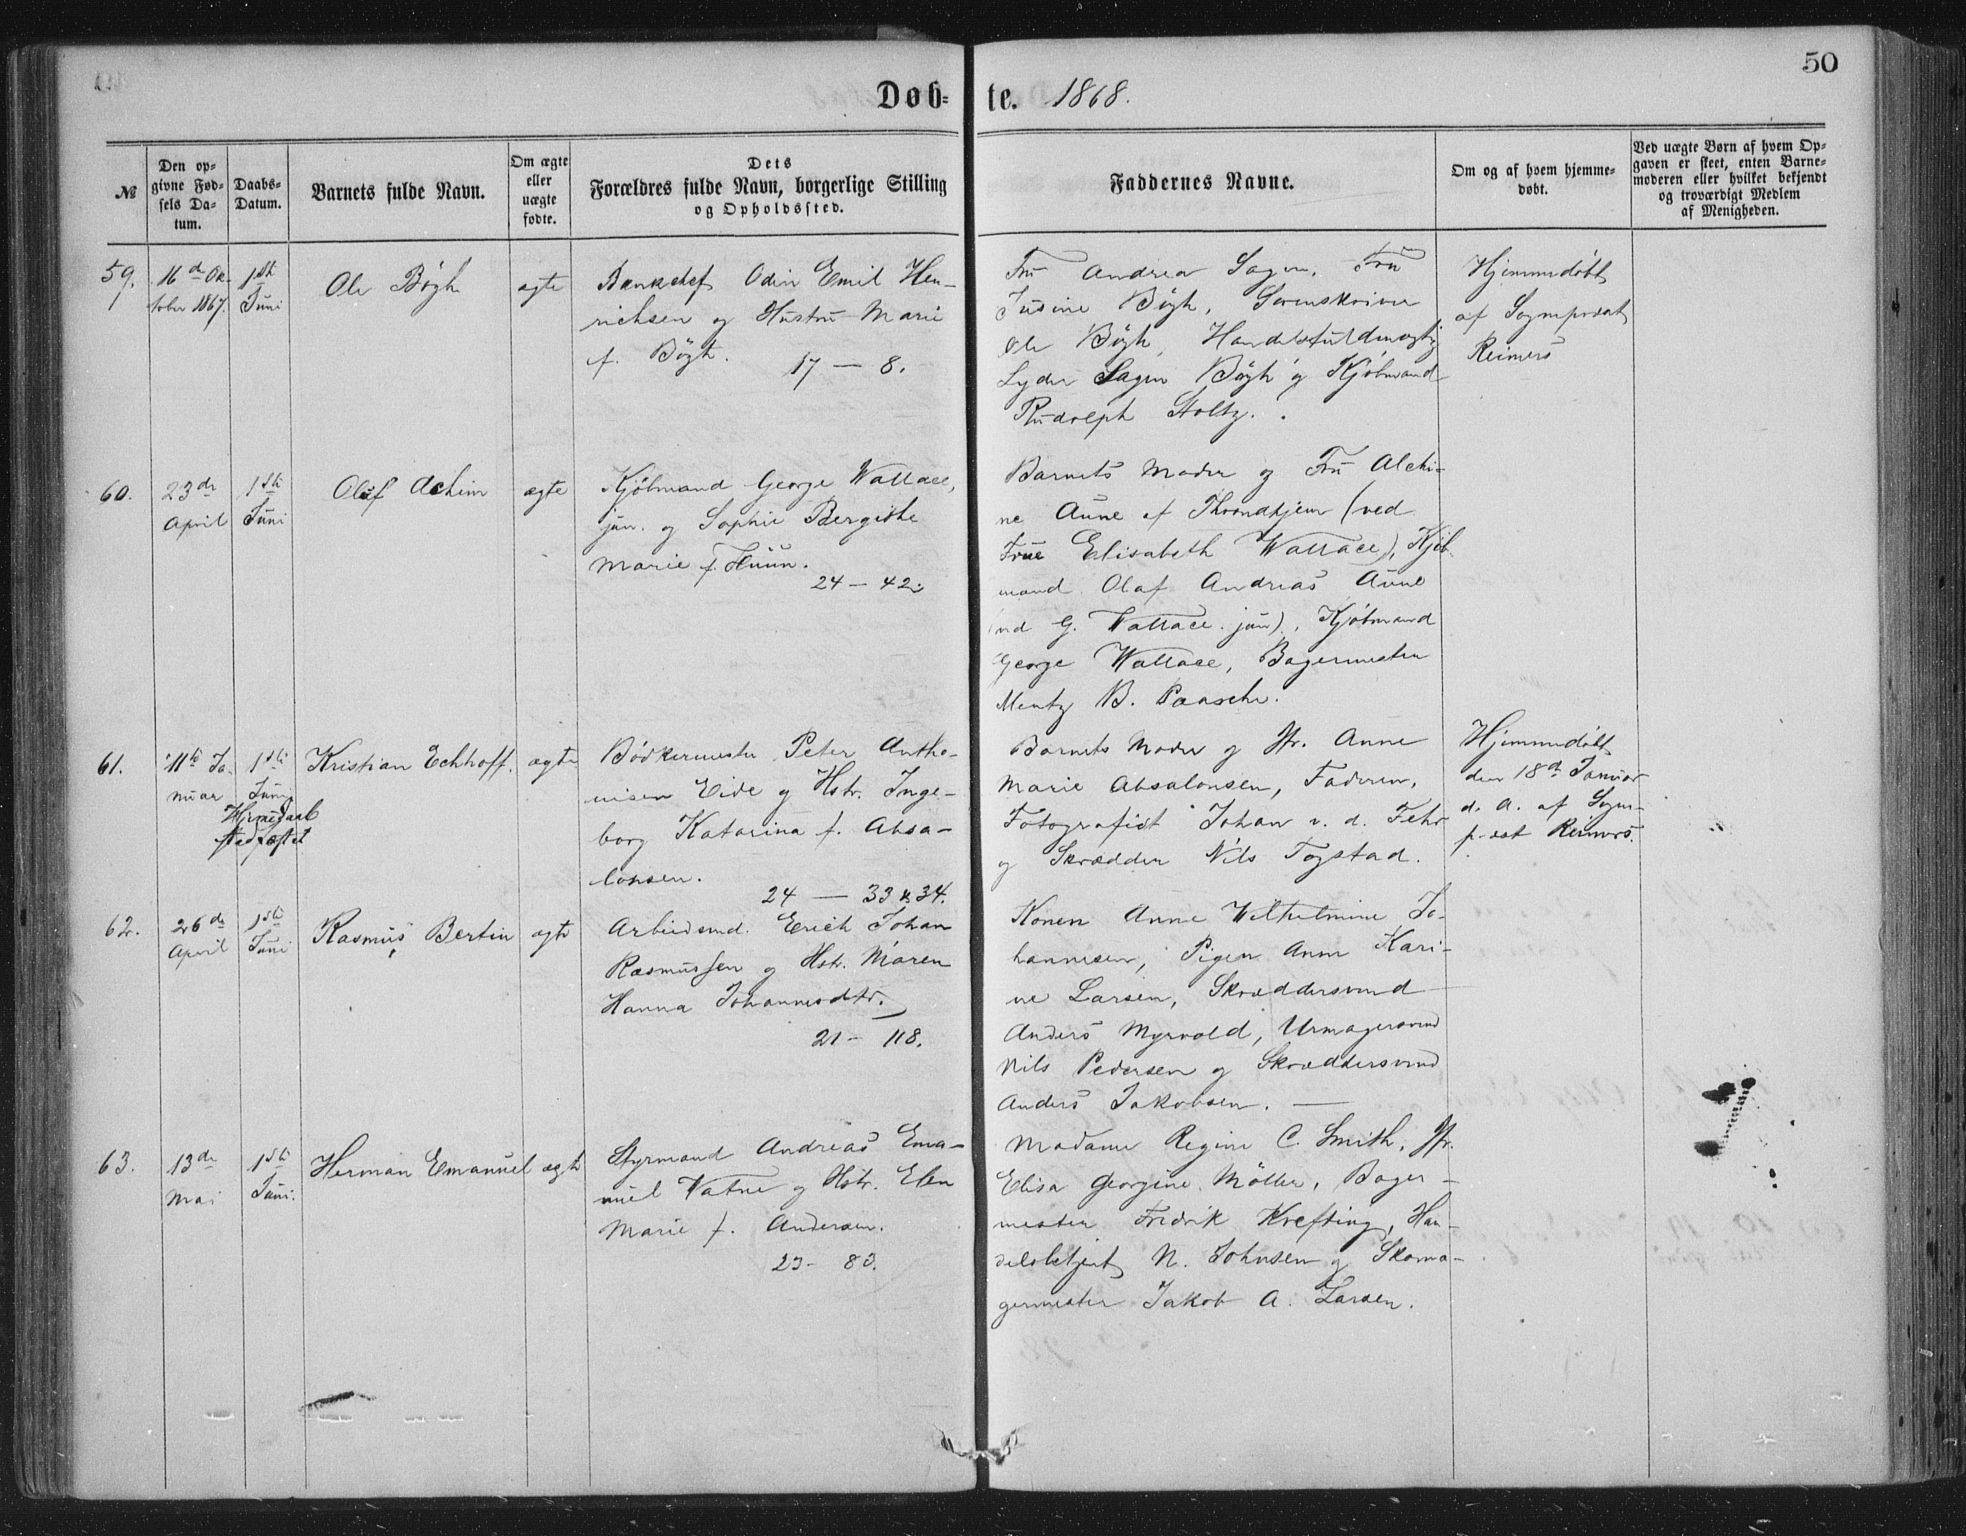 50
Døb-te. 1868.
№
Den opgivne Fødsels Datum.
Daabs-Datum.
Barnets fulde Navn.
Om ægte eller uægte fødte.
Dets Forældres fulde Navn, borgerlige Stilling og Opholdssted.
Faddernes Navne.
Om og af hvem hjemmedøbt.
Ved uægte Børn af hvem Opgaven er skeet, enten Barnemoderen eller hvilket bekjendt og troværdigt Medlem af Menigheden.
59.
16de Oktober 1867.
1ste Juni
Ole Bögh
ægte
Bankchef Odin Emil Hen-
richsen og Hustru Marie
f. Bögh.
17 — 8.
Fru Andrea Sagen, Fru
Jusine Bögh, Sorenskriver
Ole Bögh, Handelsfuldmægtig
Lyder Sagen Bögh og Kjöbmand
Rudolph Stoltz.
Hjemmedöbt
af Sogneprest
Reimers
60.
23de April
1ste Juni
Oluf Achim
ægte
Kjöbmand George Wallace,
jun. og Sophie Bergithe
Marie f. Huun.
24 — 42.
Barnets Moder og Fru Alchi-
ne Aune af Throndhjem (ved
Frue Elisabeth Wallace), Kjöb-
mand Olaf Andreas Aune
(ved G. Wallace jun), Kjöbmand
George Wallace, Bagermester
Mentz B. Paasche.
61.
11te Januar
1ste Juni
Hjemedaab
stadfæstet
Kristian Echhoff.
ægte
Bödkermester Peter Antho-
nisen Eide og Hstr. Inge-
borg Katarina f. Absa-
lonsen.
24 — 33 & 34.
Barnets Moder og Jfr. Anne
Marie Absalonsen, Faderen,
Fotografist Johan v. d. Fehr
og Skrædder Nils Togstad.
Hjemmedöbt
den 18de Januar
d. A. af Sogne-
prest Reimers.
62.
26de April
1ste Juni
Rasmus Bertin
ægte
Arbeidsmd. Erich Johan
Rasmussen og Hstr. Maren
Hanna Johannesdtr.
21 — 118.
Konen Anne Wilhelmine Jo-
hannesen, Pigen Anne Kari-
ne Larsen, Skræddersvend
Anders Myrvold, Urmagersvend
Nils Pedersen og Skræddersvend
Anders Jakobsen. —
63.
13de Mai
1ste Juni.
Herman Emanuel
ægte
Styrmand Andreas Ema-
nuel Vatne og Hstr. Elen
Marie f. Andersen.
23 — 83.
Madame Regine C. Smith, Jfr.
Elisa Georgine Möller, Bager-
mester Fredrik Krefting, Han-
delsbetjent N. Johnsen og Skoma-
germester Jakob A. Larsen.